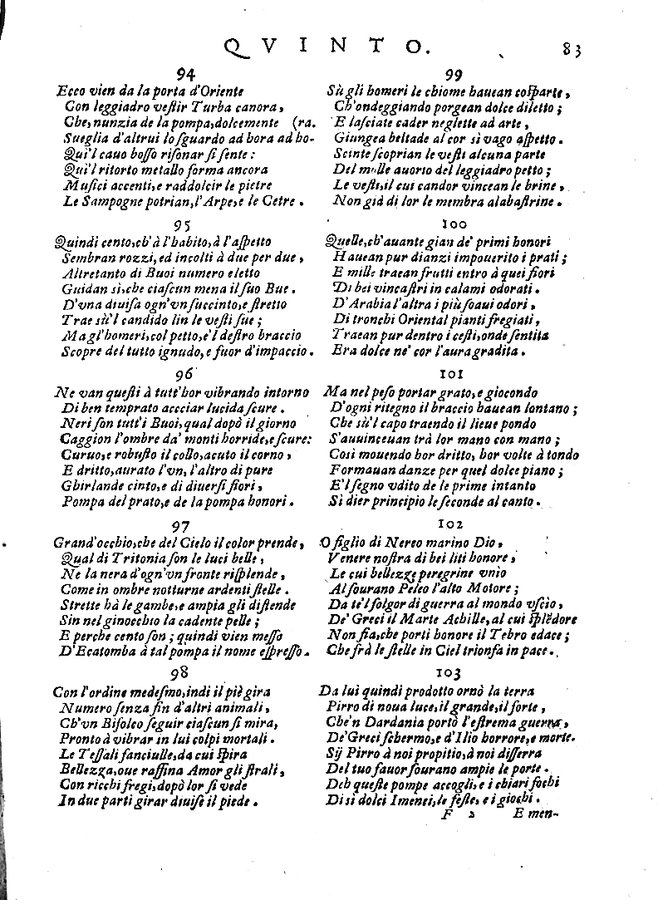 QVINTO. 83
94
Ecco vien da la porta d'Oriente
Con leggiadro vestir Turba canora,
Che, nunzia de la pompa, dolcemente (ra.
Sueglia d'altrui lo sguardo ad hora ad ho-
Qui'l cauo bosso risonar si sente:
Qui'l ritorto metallo forma ancora
Musici accenti, e raddolcir le pietre
Le Sampogne potrian, l'Arpe, e le Cetre.
95
Quindi cento, ch'à l'habito, à l'aspetto
Sembran rozzi, ed incolti à due per due,
Altretanto di Buoi numero eletto
Guidan sì, che ciascun mena il suo Bue.
D'vna diuisa ogn'vn succinto, e stretto
Trae sù'l candido lin le vesti sue;
Ma gl'homeri, col petto, e'l destro braccio
Scopre del tutto ignudo, e fuor d'impaccio.
96
Ne van questi à tutt'hor vibrando intorno
Di ben temprato accciar lucida scure.
Neri son tutt'i Buoi, qual dopò il giorno
Caggion l'ombre da' monti horride, e scure:
Curuo, e robusto il collo, acuto il corno,
E dritto, aurato l'vn, l'altro di pure
Ghirlande cinto, e di diuersi fiori,
Pompa del prato, e de la pompa honori.
97
Grand'occhio, che del Cielo il color prende,
Qual di Tritonia son le luci belle,
Ne la nera d'ogn'vn fronte risplende,
Come in ombre notturne ardenti stelle.
Strette hà le gambe, e ampia gli distende
Sin nel ginocchio la cadente pelle;
E perche cento son; quindi vien messo
D'Ecatomba à tal pompa il nome espresso.
98
Con l'ordine medesmo, indi il piè gira
Numero senza fin d'altri animali,
Ch'vn Bifolco seguir ciascun si mira,
Pronto à vibrar in lui colpi mortali.
Le Tessali fanciulle, da cui spira
Bellezza, oue raffina Amor gli strali,
Con ricchi fregi, dopò lor si vede
In due parti girar diuise il piede.
99
Sù gli homeri le chiome hauean cosparte,
Ch'ondeggiando porgean dolce diletto;
E lasciate cader neglette ad arte,
Giungea beltade al cor sì vago aspetto.
Scinte scoprian le vesti alcuna parte
Del molle auorio del leggiadro petto;
Le vesti, il cui candor vincean le brine,
Non già di lor le membra alabastrine.
100
Quelle, ch'auante gian de' primi honori
Hauean pur dianzi impouerito i prati;
E mille traean frutti entro à quei fiori
Di bei vincastri in calami odorati.
D'Arabia l'altra i più soaui odori,
Di tronchi Oriental pianti fregiati,
Traean pur dentro i cesti, onde sentita
Era dolce ne' cor l'aura gradita.
101
Ma nel peso portar grato, e giocondo
D'ogni ritegno il braccio hauean lontano;
Che sù'l capo traendo il lieue pondo
S'auuinceuan trà lor mano con mano;
Così mouendo hor dritto, hor volte à tondo
Formauan danze per quel dolce piano;
E'l segno vdito de le prime intanto
Si dier principio le seconde al canto.
102
O figlio di Nereo marino Dio,
Venere nostra di bei liti honore,
Le cui bellezze peregrine vnìo
Al sourano Peleo l'alto Motore;
Da te'l folgor di guerra al mondo vscìo,
De' Greci il Marte Achille, al cui splēdore
Non fia, che porti honore il Tebro edace;
Che frà le stelle in Ciel trionfa in pace.
103
Da lui quindi prodotto ornò la terra
Pirro di noua luce, il grande, il forte,
Che'n Dardania portò l'estrema guerra,
De' Greci schermo, e d'Ilio horrore, e morte.
Sij Pirro à noi propitio, à noi disserra
Del tuo fauor sourano ampie le porte.
Deh queste pompe accogli, e i chiari fochi
Di sì dolci Imenei, le feste, e i giochi.
F 2 E men-